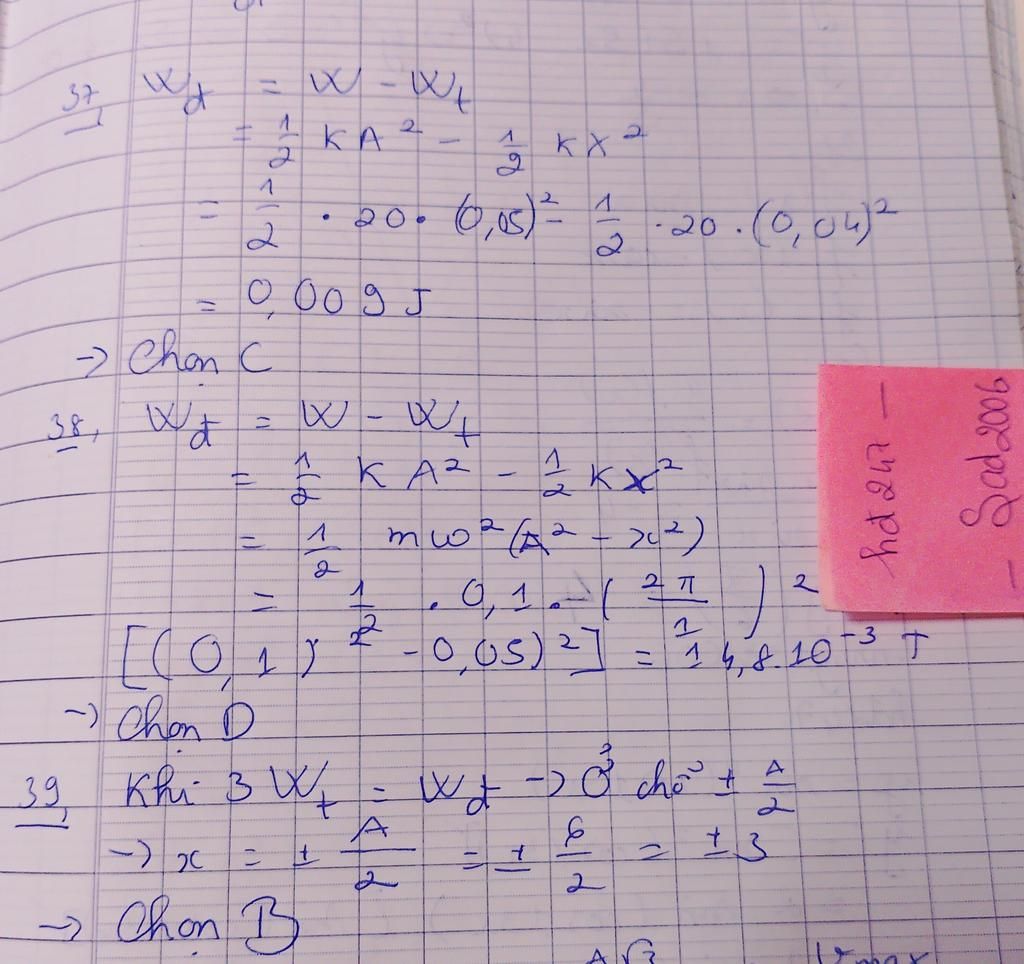 37, Wđ = W - Wt
= 1/2 KA² - 1/2 KX²
= 1/2 . 20 . (0,05)² - 1/2 . 20 . (0,04)²
= 0,009 J
-> Chọn C
38, Wđ = W - Wt
= 1/2 KA² - 1/2 KX²
= 1/2 mω² (A² - x²)
= 1/2 . 0,1 . (2π/1)²
[(0,1)² - 0,05)²] = 14,8.10⁻³ J
-> Chọn D
39, Khi 3 Wt = Wđ -> Ở chỗ ± A/2
-> x = ± A/2 = ± 6/2 = ± 3
-> Chọn B
A√3 Vmax
hdt247 -
- Gad2006